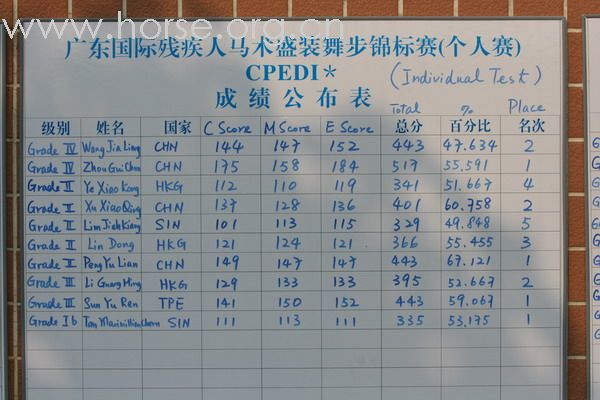 www.horse.org.cn
广东国际残疾人马术盛装舞步锦标赛(个人赛)
CPEDI* (Individual Test)
成绩公布表
Total % Place
级别 姓名 国家 C Score M Score E Score 总分 百分比 名次
Grade IV Wang Jia Ling CHN 144 147 152 443 47.634 2
Grade IV Zhou Gui Chun CHN 175 158 184 517 55.591 1
Grade II Ye Xiao Kang HKG 112 110 119 341 51.667 4
Grade I Xu Xiao Qing CHN 137 128 136 401 60.758 2
Grade II Lim Jieh Kiang SIN 101 113 115 329 49.848 5
Grade II Lin Dong HKG 121 124 121 366 55.455 3
Grade I Peng Yu Lian CHN 149 147 147 443 67.121 1
Grade III Li Guang Ming HKG 129 133 133 395 52.667 2
Grade III Sun Yu Ren TPE 141 150 152 443 59.067 1
Grade Ib Tan Maximillian Chern SIN 111 113 111 335 53.175 1